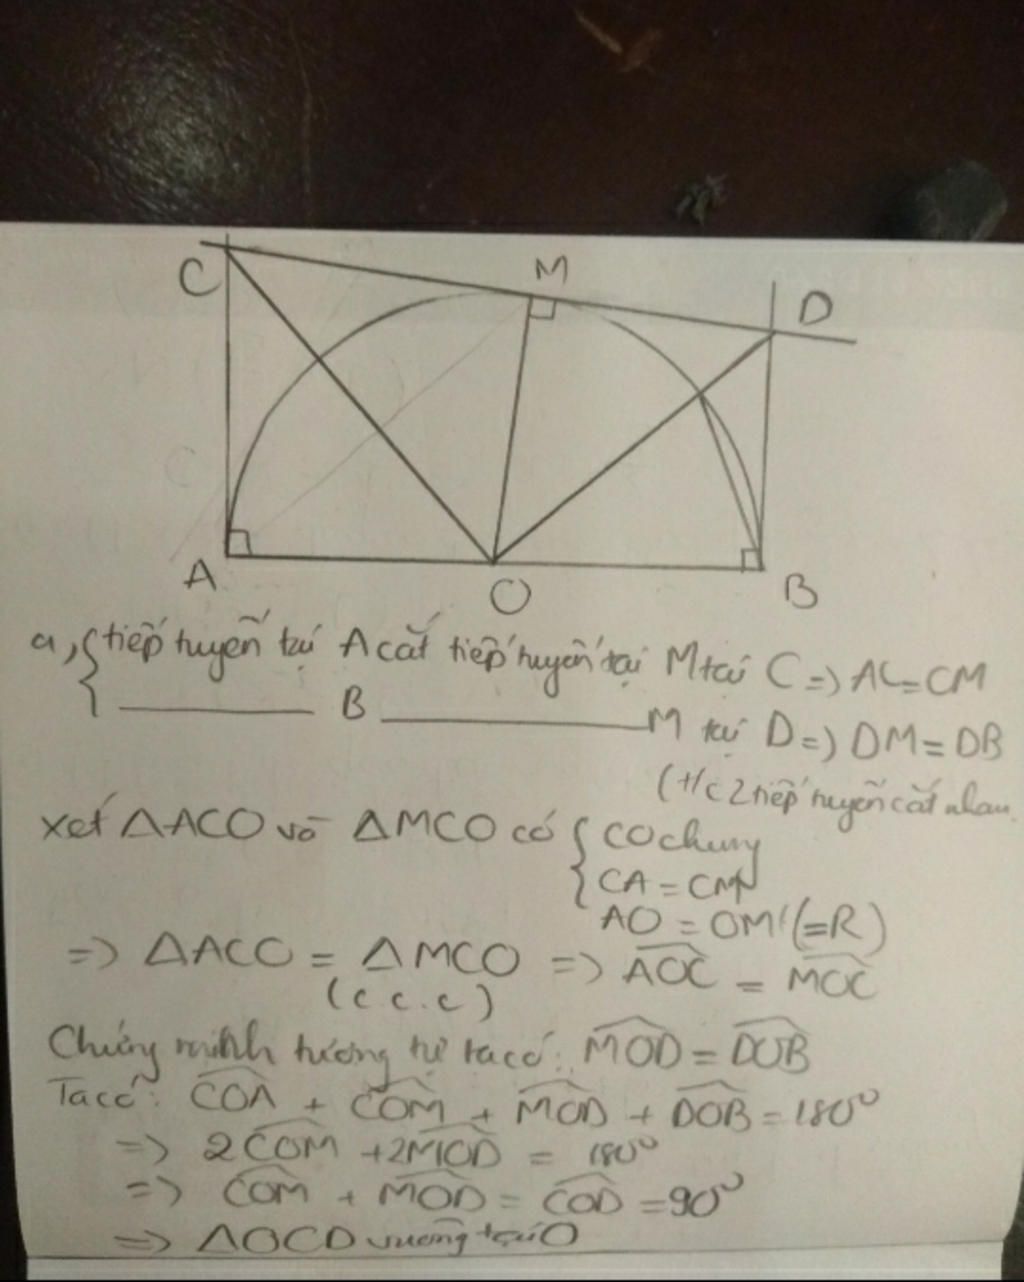 C
M
D
A
O
B
a, { tiếp tuyến tại A cắt tiếp tuyến tại M tại C => AC = CM
{ ——— B ——— M tại D => DM = DB
(t/c 2 tiếp tuyến cắt nhau
xét ΔACO và ΔMCO có { CO chung
CA = CM
AO = OM (=R)
=> ΔACO = ΔMCO => \widehat{AOC} = \widehat{MOC}
(c.c.c)
Chứng minh tương tự ta có: \widehat{MOD} = \widehat{DOB}
Ta có: \widehat{COA} + \widehat{COM} + \widehat{MOD} + \widehat{DOB} = 180°
=> 2\widehat{COM} + 2\widehat{MOD} = 180°
=> \widehat{COM} + \widehat{MOD} = \widehat{COD} = 90°
=> ΔOCD vuông tại O